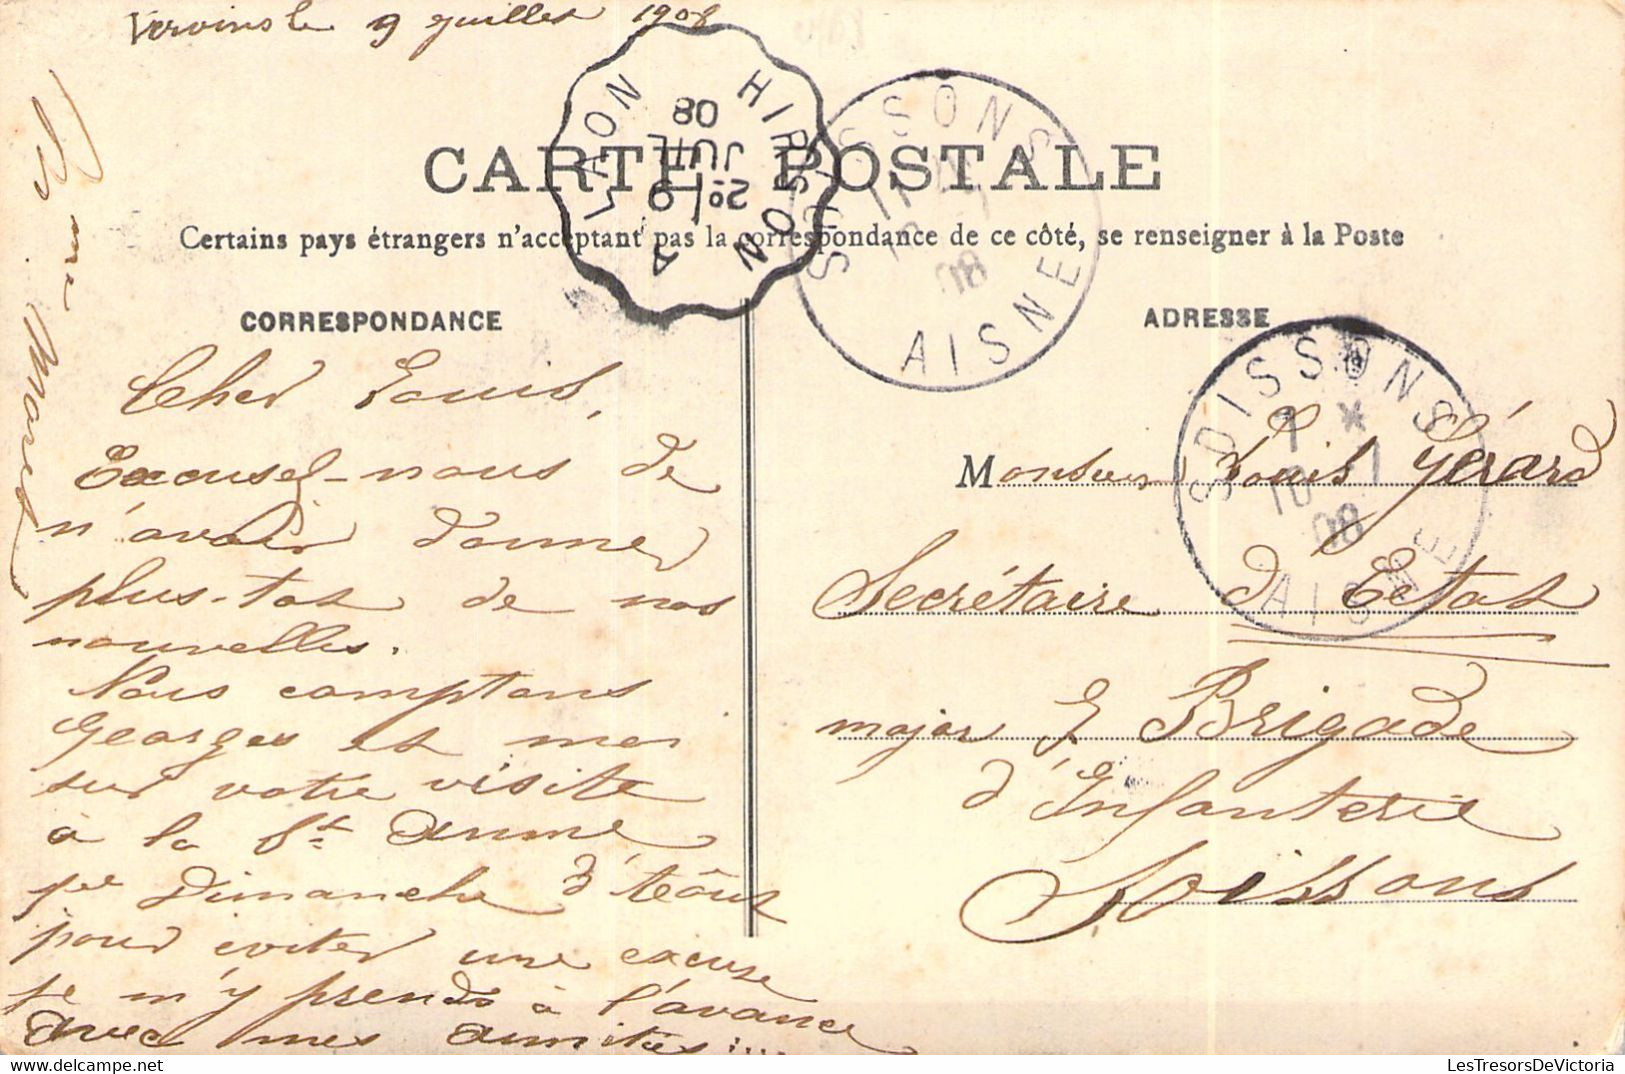 Vervins le 9 Juillet 1908
HIRSON A LAON
2º/9
JUIL
08
SOISSONS
AISNE
08
CARTE POSTALE
Certains pays étrangers n'acceptant pas la correspondance de ce côté, se renseigner à la Poste
CORRESPONDANCE
Cher Louis,
Excusez-nous de
n'avoir donner
plus-tot de nos
nouvelles.
Nous comptons
Georges et moi
sur votre visite
à la St. Anne
1er Dimanche d'Août
pour eviter une excuse
je m'y prends à l'avance
avec mes amitiés....
ADRESSE
SOISSONS
7 *
10 - 7
08
AISNE
Monsieur Louis Gérard
Secrétaire d'Etat
major
Brigade
d'Infanterie
Soissons
LesTresorsDeVictoria